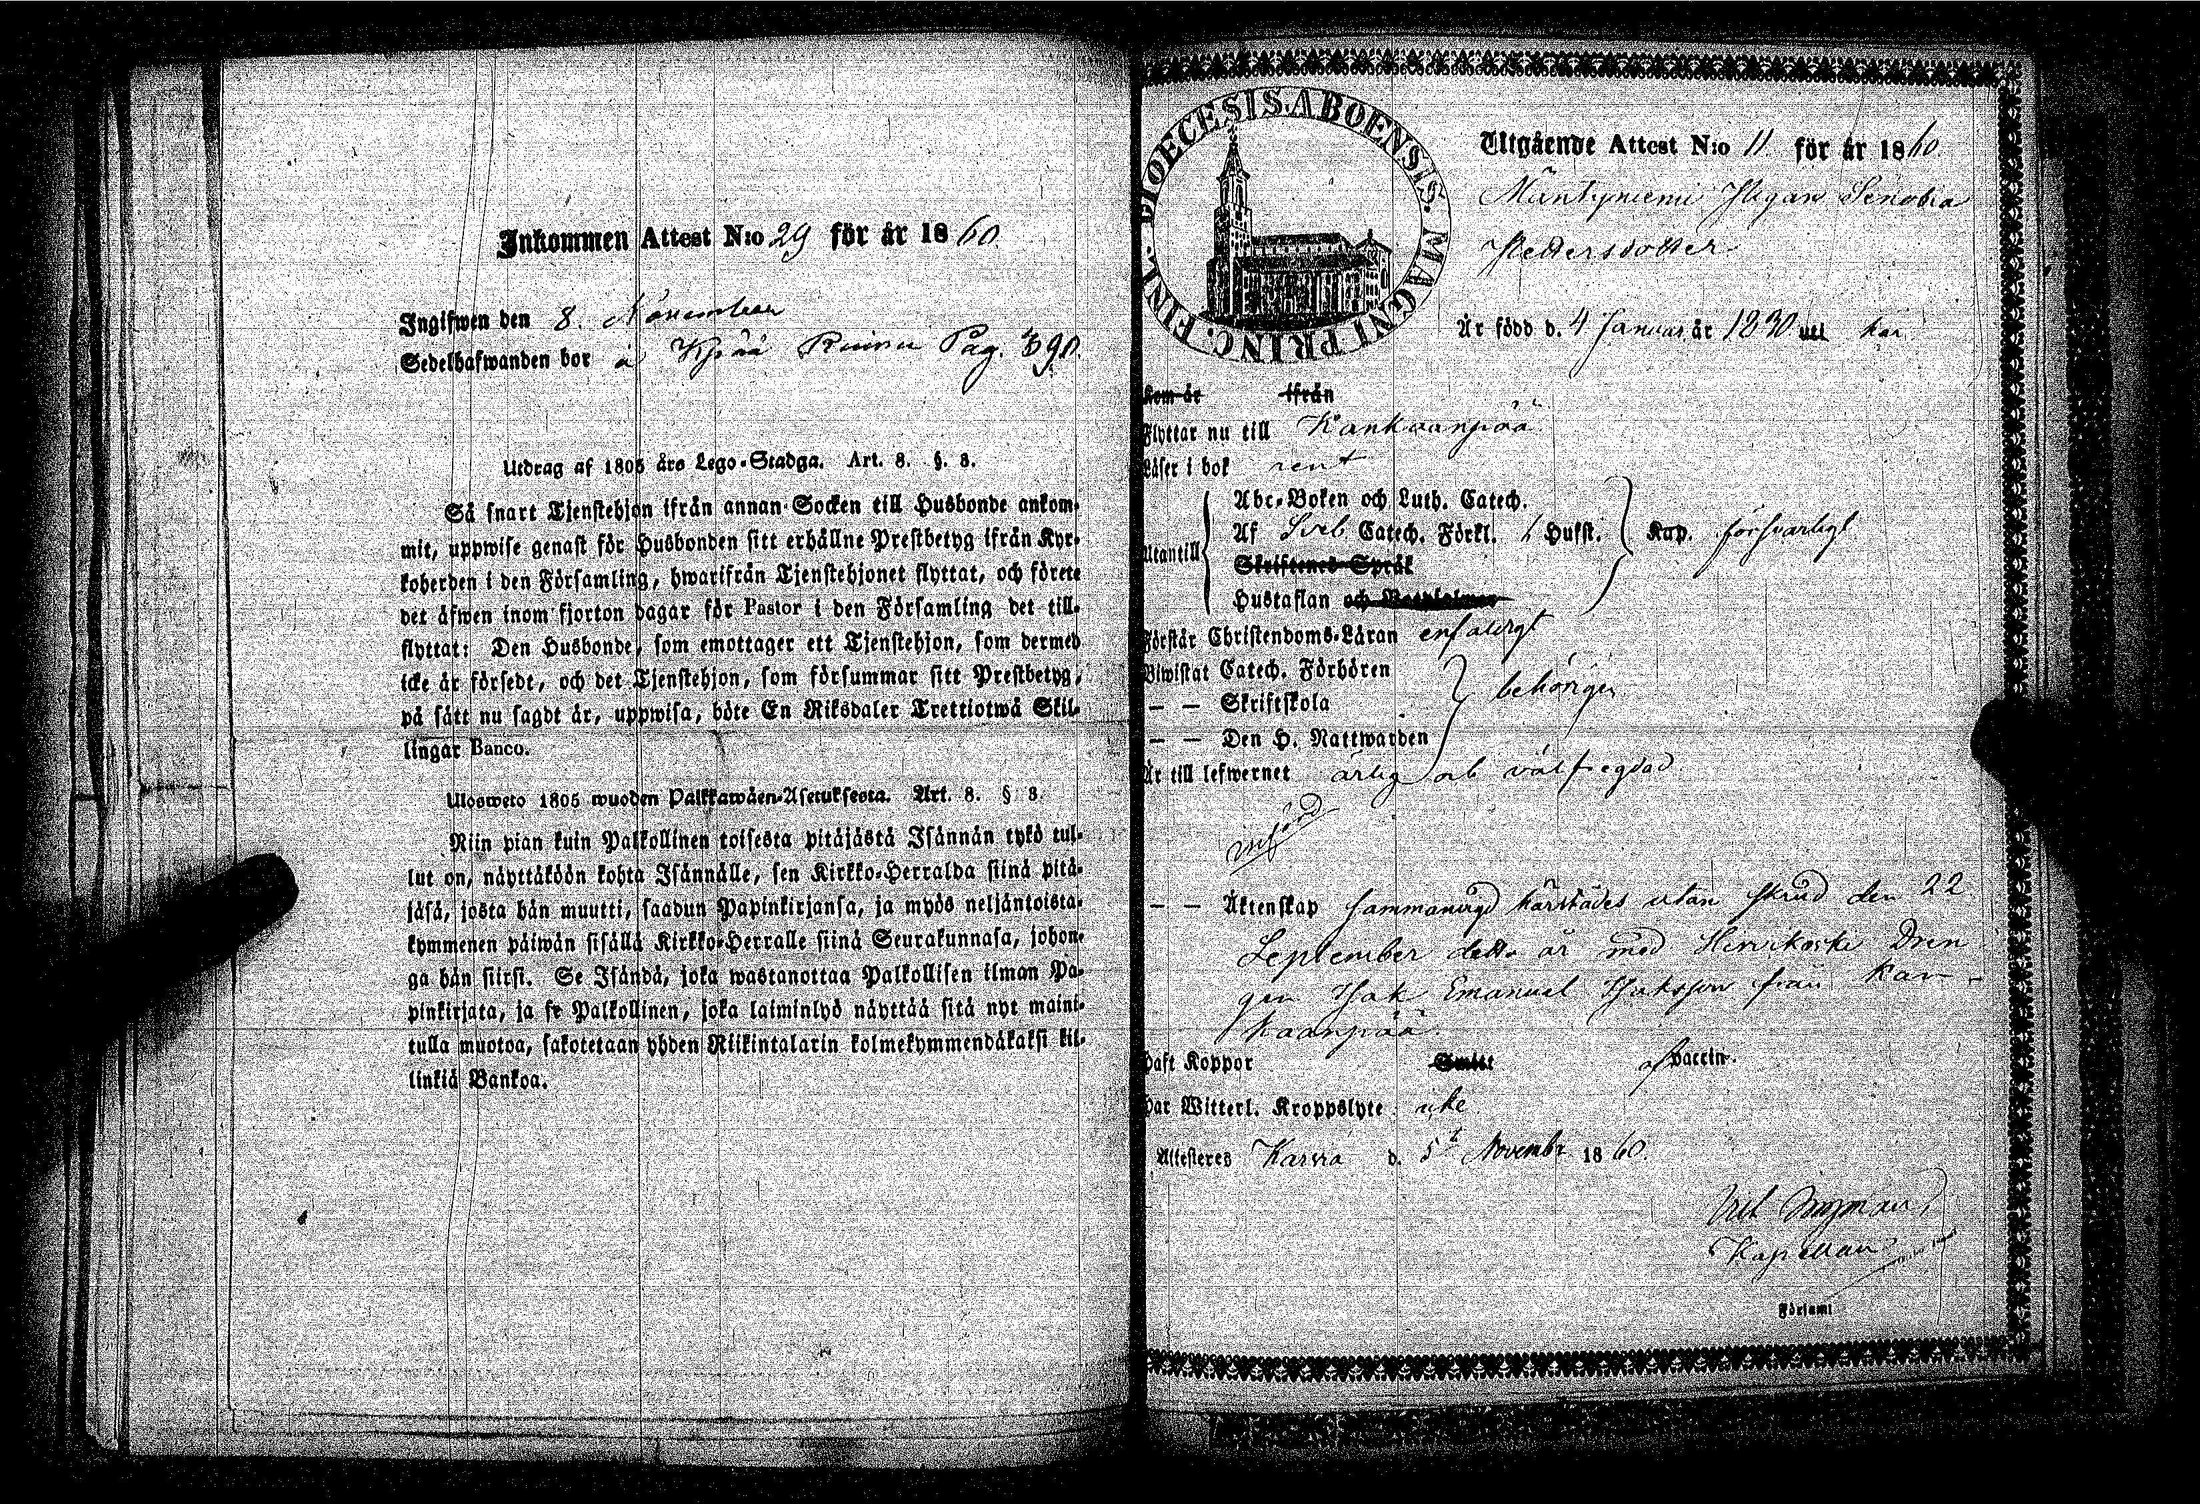 Inkommen Attest N:o 29 för år 1860
Ingifwen den 8. November
Sedelhafwanden bor å Pag. 390.
Utdrag af 1805 års Lego-Stadga. Art. 8. §. 8.
Så snart Tjenstehjon ifrån annan Socken till Husbonde ankom-
mit, uppwise genast för Husbonden sitt erhållne Prestbetyg ifrån Kyr-
koherden i den Församling, hwarifrån Tjenstehjonet flyttat, och förete
det äfwen inom fjorton dagar för Pastor i den Församling det till-
flyttat: Den Husbonde, som emottager ett Tjenstehjon, som dermed
icke är försedt, och det Tjenstehjon, som försummar sitt Prestbetyg,
på sätt nu sagdt är, uppwisa, böte En Riksdaler Trettiotwå Skil-
lingar Banco.
Ulosweto 1805 wuoden Palkkawäen-Asetuksesta. Art. 8. § 8.
Niin pian kuin Palkollinen toisesta pitäjästä Isännän tykö tul-
lut on, näyttäköön kohta Isännälle, sen Kirkko-Herralda siinä pitä-
jäsä, josta hän muutti, saadun Papinkirjansa, ja myös neljäntoista-
kymmenen päiwän sisällä Kirkko-Herralle siinä Seurakunnasa, johon-
ga hän siirsi. Se Isändä, joka wastanottaa Palkollisen ilman Pa-
pinkirjata, ja se Palkollinen, joka laiminlyö näyttää sitä nyt maini-
tulla muotoa, sakotetaan yhden Riikintalarin kolmekymmendäkaksi kil-
linkiä Bankoa.
DIOECESIS ABOENSIS. MAGNI PRINC. FINL.
Utgående Attest N:o 11. för år 1860.
Mäntyniemi Pigan Senobia
Pettersdotter
Är född d. 4 Januar. år 1830 uti här.
Kom år ifrån
Flyttar nu till Kankaanpää
Läser i bok rent
Utantill
Abc-Boken och Luth. Catech.
Af Sveb. Catech. Förkl. Hufst. Kap. försvarligt
Skriftenes Språk
Hustaflan och
Förstår Christendoms-Läran enfaldigt
Biwistat Catech. Förhören
— — Skriftskola behörigen
— — Den H. Nattwarden
Är till lefwernet ärlig och välfregdad
— — Äktenskap sammanvigd härstädes utan skrud den 22
September detta år med Drän
gen Isak Emanuel Isaksson från Kan-
kaanpää.
Haft Koppor Smitt af Vaccin.
Har Witterl. Kroppslyte: icke
Attesteres Karvia d. 5t Novembr 1860.
Kapellan
Förlamt